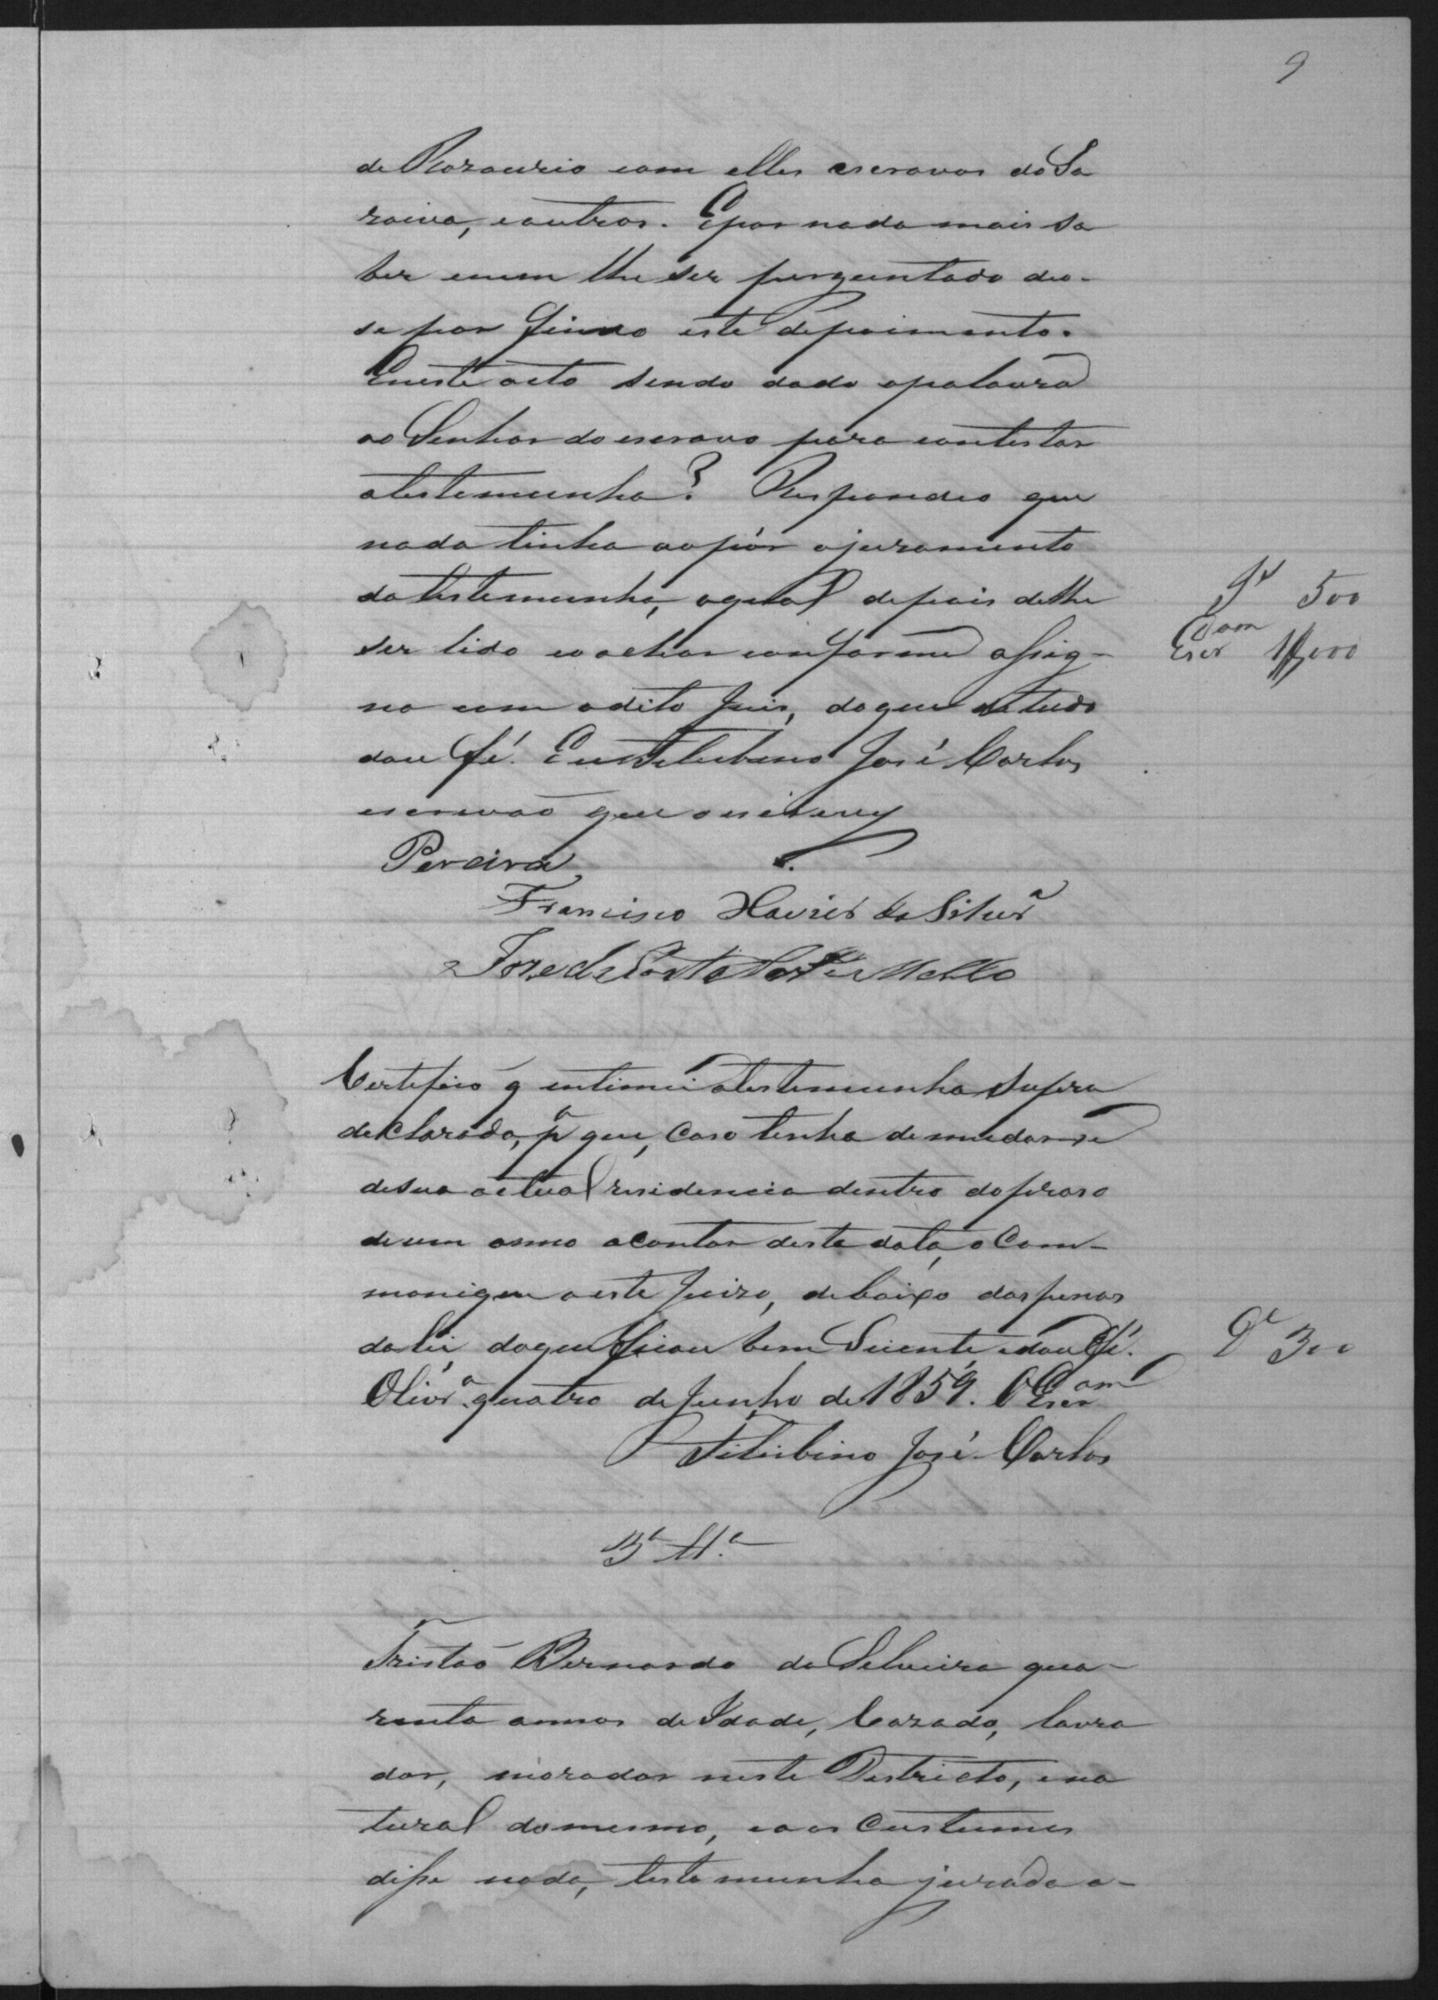 9
de Rozaurio com elles escravos do Sa
raiva, e outros. E por nada mais sa
ber e nem lhe ser perguntado deo-
se por findo este depoimento.
E neste acto sendo dado a palavra
ao Senhor do escravo para contestar
a testemunha? Respondeo que
nada tinha a opôr o juramento
da testemunha, a qual depois de lhe
ser lido e o achar conforme assig-
no com o dito Juis, do que de tudo
dou fé. Eu Telesbino José Carlos
escrivaõ que o escrevy
Jz 500
Escr am 1$000
Pereira
Francisco Xavier da Silvrª
José da Costa Mello
Certefico q intimei a testemunha supra
declarada, pª que, caso tenha de mudar-se
de sua actual residencia dentro do praso
de um anno a contar desta data, o Com-
monique a este Juizo, debaixo das penas
da lei, do que ficou bem Sciente, e dou fé.
Olivrª quatro de Junho de 1859. O Escr am
Telesbino José Carlos
Dº 300
3ª Tª
Tristaõ Bernardo da Silveira qua-
renta annos de Idade, Cazado, lavra
dor, morador neste Destricto, e na
tural do mesmo, e aos Custumes
disse nada, testemunha jurada a-